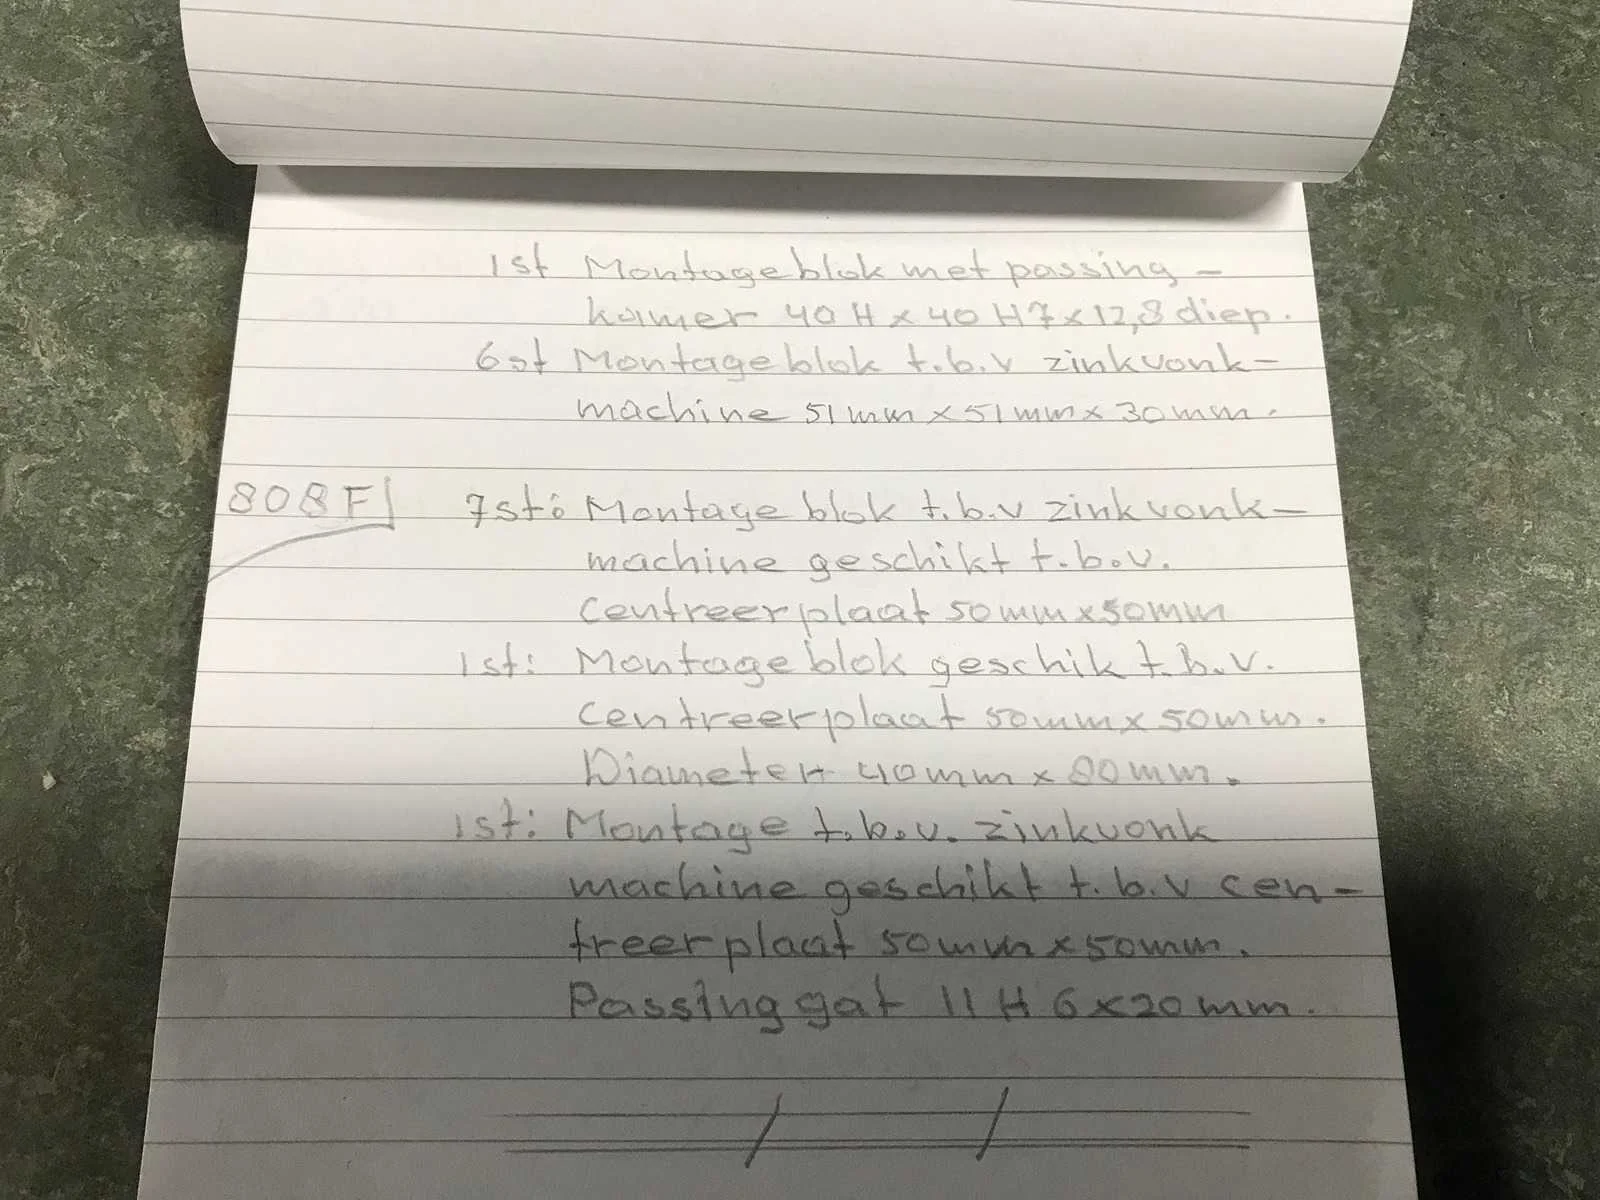 1st Montageblok met passing-
kamer 40 H x 40 H7 x 12,8 diep.
6st Montageblok t.b.v zinkvonk-
machine 51mm x 51mm x 30mm.
808F 7st: Montageblok t.b.v zinkvonk-
machine geschikt t.b.v.
centreerplaat 50mm x 50mm
1st: Montageblok geschik t.b.v.
centreerplaat 50mm x 50mm.
Diameter 40mm x 80mm.
1st: Montage t.b.v. zinkvonk
machine geschikt t.b.v cen-
treerplaat 50mm x 50mm.
Passing gat 11 H 6 x 20mm.